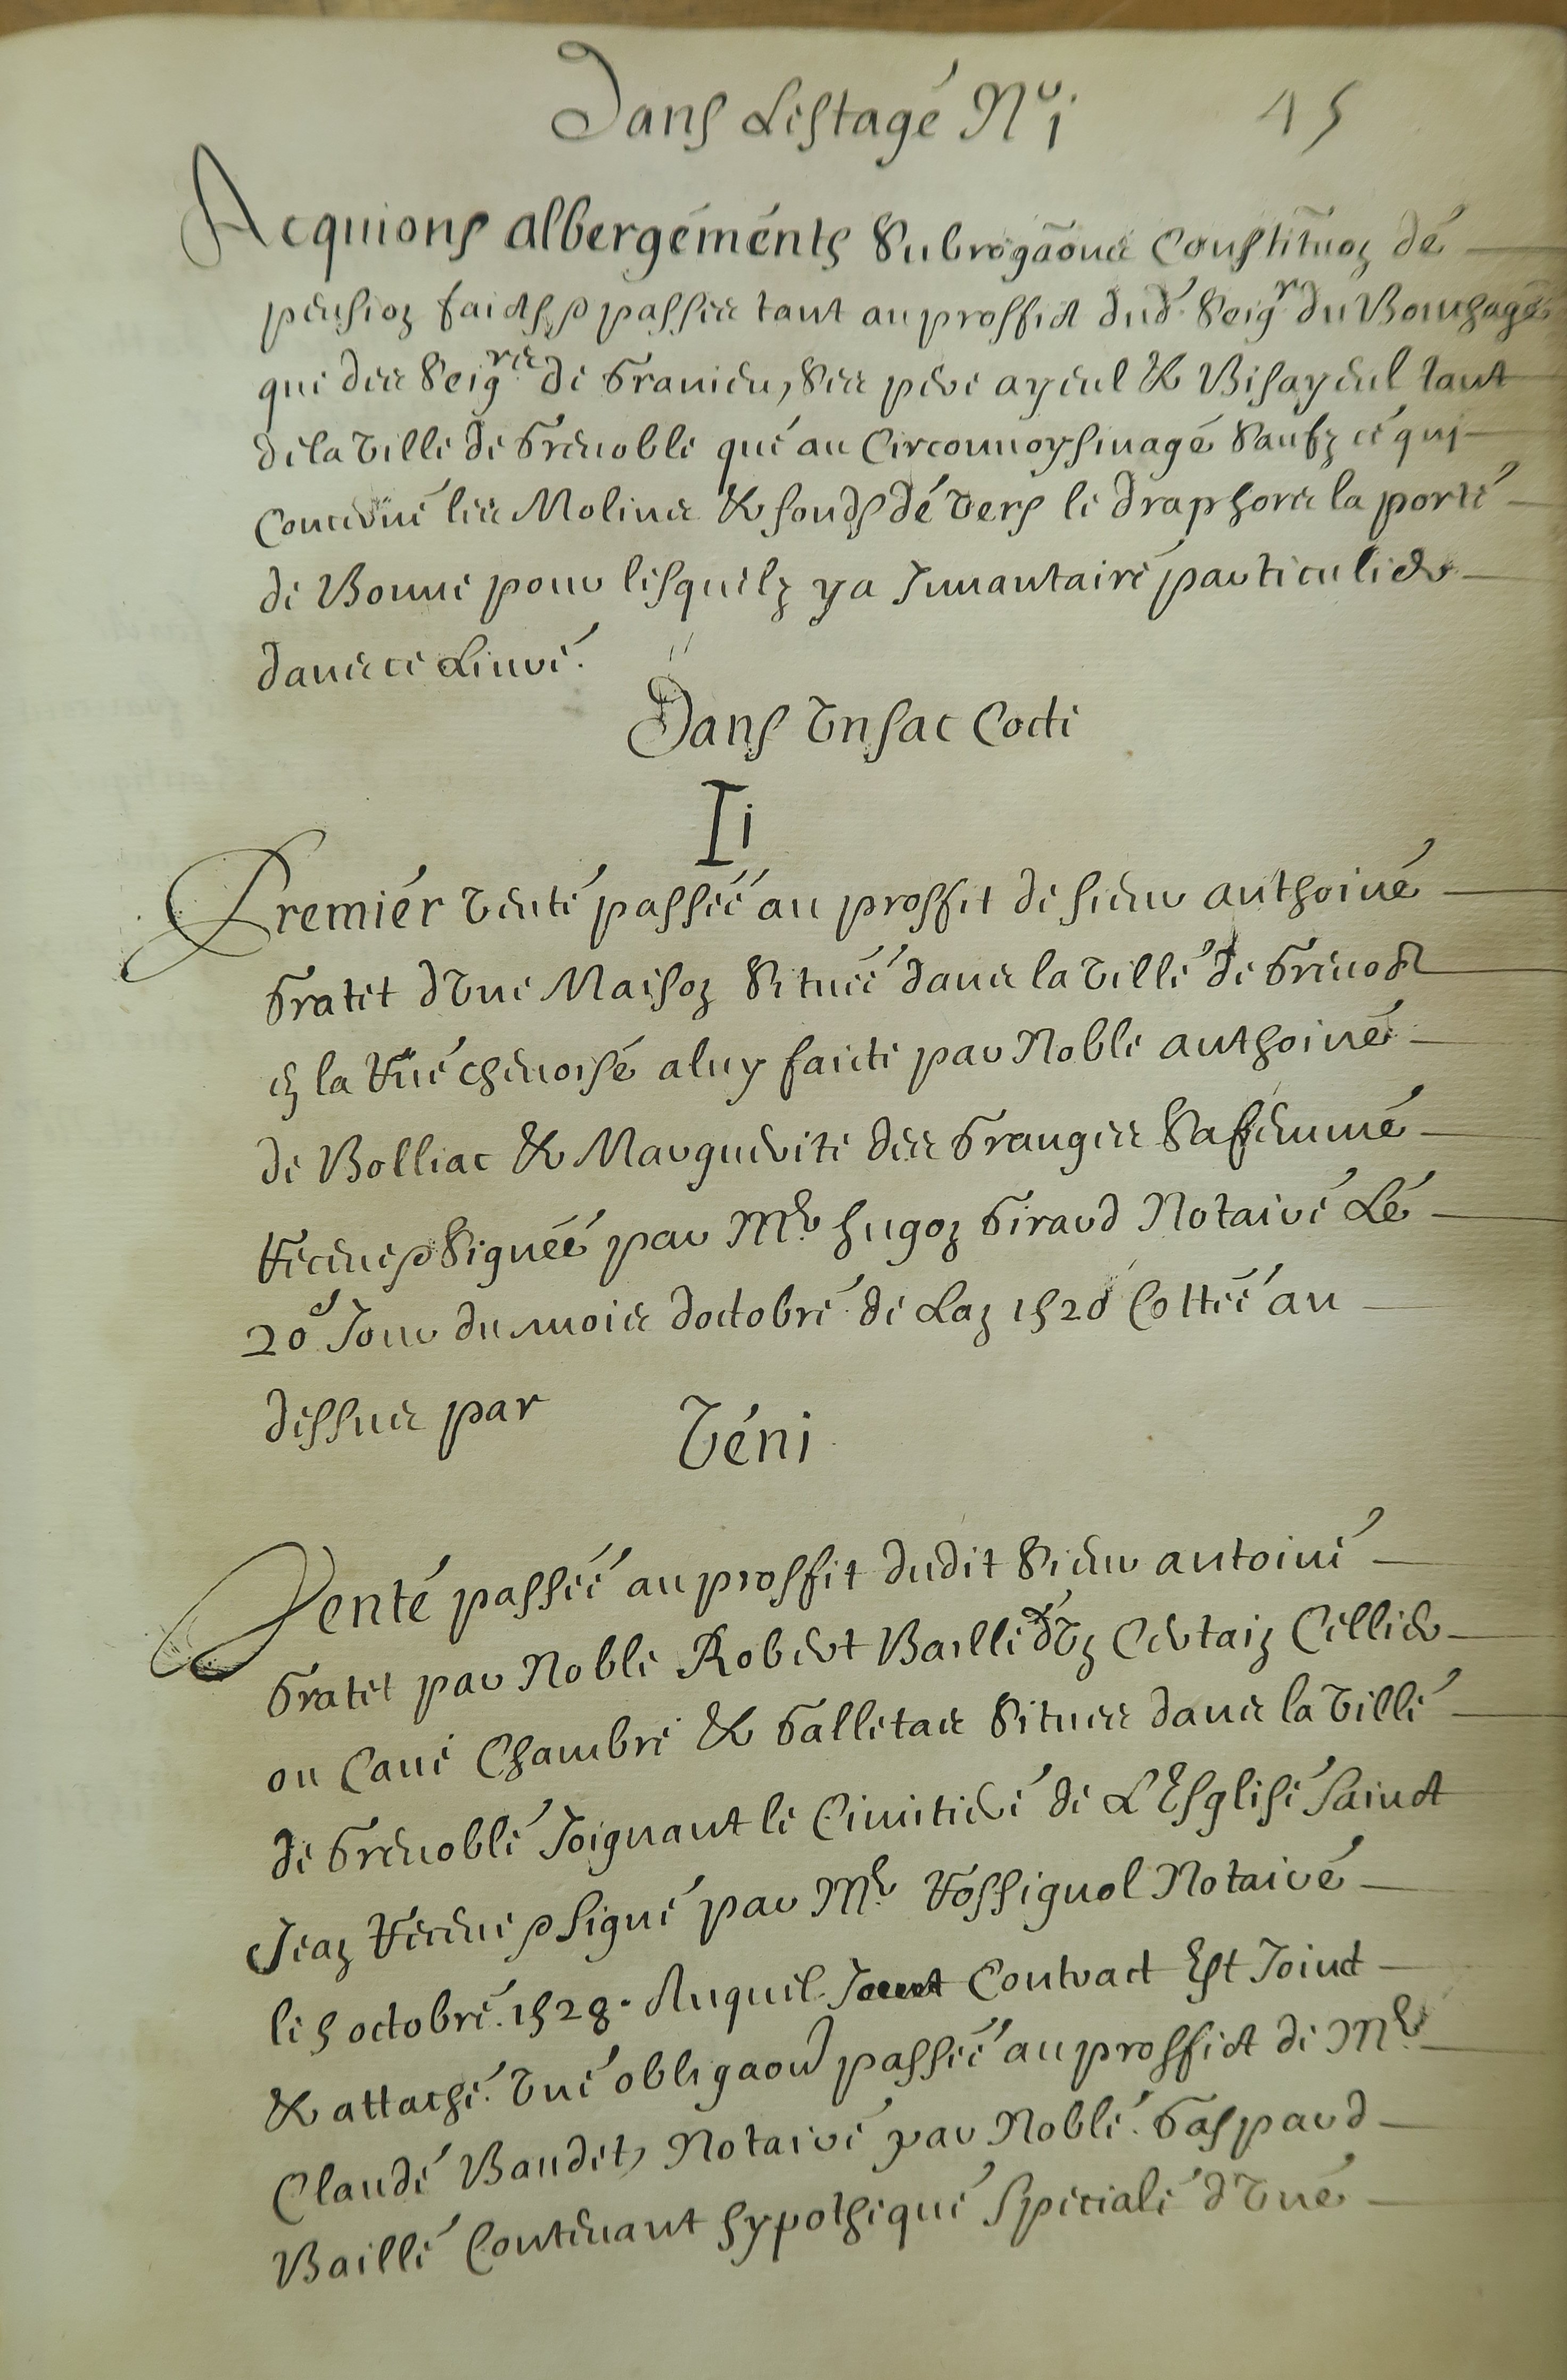 Dans Lestage N° 1 45
Acquions albergements Subrogaõns Constituõn de
pension faicts & passes tant au proffict dud. Seigr du Bouchage
que des Seigrs de Granieu, ses pere ayeul & Bisayeul tant
de la Ville de Grenoble que au Circonvoysinage Saufz ce qui
Concerne les Molins & fonds de Vers le drap hors la porte
de Bonne pour lesquelz y a Invantaire particulier
dans ce Livre.
Dans Un sac Cotté
I i
Premier Vente passée au proffit de sieur anthoine
Gratet d'Une Maison Située dans la Ville de Grenobl
en la Rue chenoise a luy faicte par Noble anthoine
de Bolliac & Marguerite des Granges Sa femme
Receue & Signée par Mr hugon Girard Notaire Le
20e Jour du mois doctobre de Lan 1520 Cottée au
dessus par
Vé n i
Vente passée au proffit dudit Sieur antoine
Gratet par Noble Robert Baille d'Un Certain Cellier
ou Cave Chambre & Galletas Situes dans la Ville
de Grenoble Joignant le Cimitiere de L'Esglise Sainct
Jean Receue & signé par Mr Rossignol Notaire
le 5 octobre 1528. Auquel Contract Est Joinct
& attaché Une obligaõn passée au proffict de Mr
Claude Baudet, Notaire par Noble Gaspard
Baille Contenant hypotheque Speciale d'Une